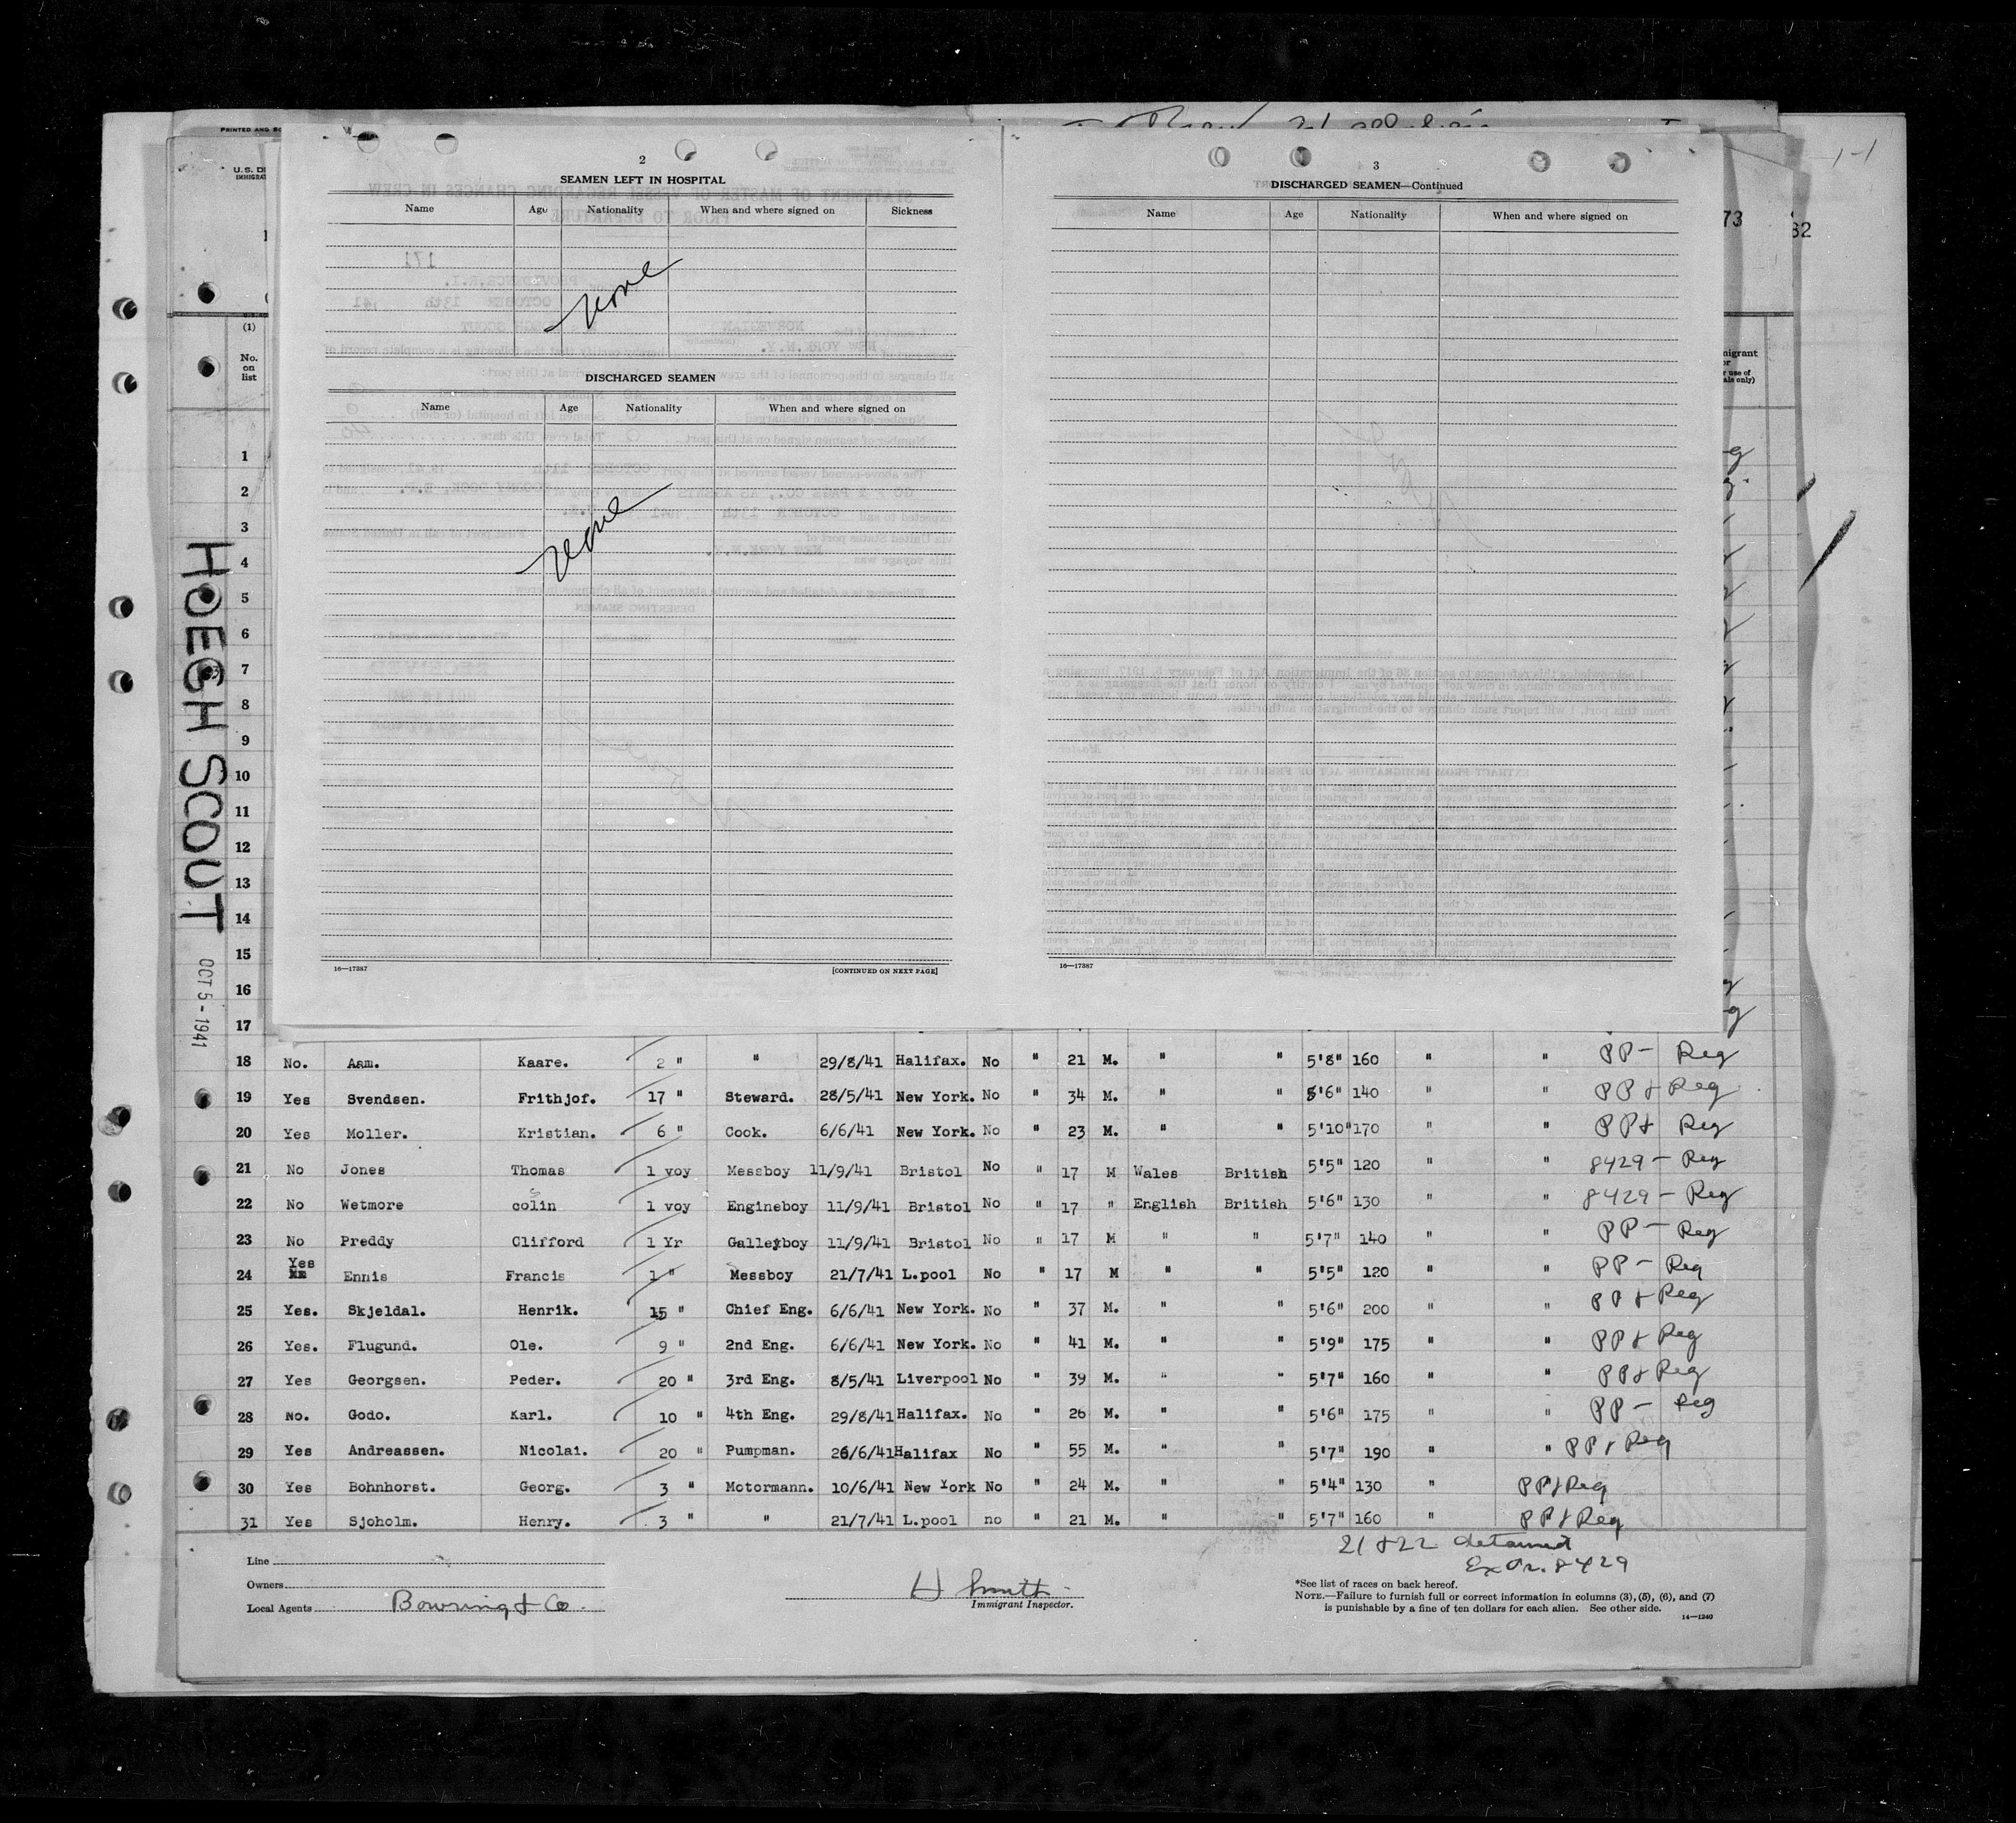 PRINTED AND
U.S. DE
IMMIGRAT
(1)
No.
on
list
HOEGH SCOUT
OCT 5 - 1941
2
SEAMEN LEFT IN HOSPITAL
Name Age Nationality When and where signed on Sickness
None
DISCHARGED SEAMEN
Name Age Nationality When and where signed on
None
16—17387 [CONTINUED ON NEXT PAGE]
3
DISCHARGED SEAMEN—Continued
Name Age Nationality When and where signed on
16—17387
73
32
migrant
or
r use of
als only)
1
2
3
4
5
6
7
8
9
10
11
12
13
14
15
16
17
18 No. Aam. Kaare. 2 " " 29/8/41 Halifax. No " 21 M. " " 5'8" 160 " " PP— Reg
19 Yes Svendsen. Frithjof. 17 " Steward. 28/5/41 New York. No " 34 M. " " 5'6" 140 " " PP & Reg
20 Yes Moller. Kristian. 6 " Cook. 6/6/41 New York. No " 23 M. " " 5'10" 170 " " PP& Reg
21 No Jones Thomas 1 voy Messboy 11/9/41 Bristol No " 17 M Wales British 5'5" 120 " " 8429 — Reg
22 No Wetmore colin 1 voy Engineboy 11/9/41 Bristol No " 17 " English British 5'6" 130 " " 8429 — Reg
23 No Preddy Clifford 1 Yr Galleyboy 11/9/41 Bristol No " 17 M " " 5'7" 140 " " PP — Reg
24 Yes Ennis Francis 1 " Messboy 21/7/41 L.pool No " 17 M " " 5'5" 120 " " PP — Reg
25 Yes. Skjeldal. Henrik. 15 " Chief Eng. 6/6/41 New York. No " 37 M. " " 5'6" 200 " " PP & Reg
26 Yes. Flugund. Ole. 9 " 2nd Eng. 6/6/41 New York. No " 41 M. " " 5'9" 175 " " PP & Reg
27 Yes Georgsen. Peder. 20 " 3rd Eng. 8/5/41 Liverpool No " 39 M. " " 5'7" 160 " " PP& Reg
28 No. Godo. Karl. 10 " 4th Eng. 29/8/41 Halifax. No " 26 M. " " 5'6" 175 " " PP — Reg
29 Yes Andreassen. Nicolai. 20 " Pumpman. 26/6/41 Halifax No " 55 M. " " 5'7" 190 " " PP & Reg
30 Yes Bohnhorst. Georg. 3 " Motormann. 10/6/41 New York No " 24 M. " " 5'4" 130 " " PP & Reg
31 Yes Sjoholm. Henry. 3 " " 21/7/41 L.pool no " 21 M. " " 5'7" 160 " " PP & Reg
21 & 22 detained
Ex Or. 8429
Line
Owners
Local Agents Bowring & Co.
H Smith
Immigrant Inspector.
*See list of races on back hereof.
NOTE.—Failure to furnish full or correct information in columns (3), (5), (6), and (7)
is punishable by a fine of ten dollars for each alien. See other side.
14—1240